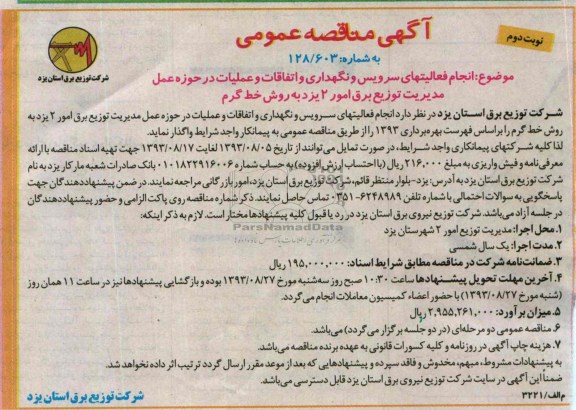 نوبت دوم
آگهی مناقصه عمومی
به شماره: ۱۲۸/۶۰۳
شرکت توزیع برق استان یزد
موضوع: انجام فعالیتهای سرویس و نگهداری و اتفاقات و عملیات در حوزه عمل
مدیریت توزیع برق امور ۲ یزد به روش خط گرم
شرکت توزیع برق استان یزد در نظر دارد انجام فعالیتهای سرویس و نگهداری و اتفاقات و عملیات در حوزه عمل مدیریت توزیع برق امور ۲ یزد به
روش خط گرم را براساس فهرست بهره‌برداری ۱۳۹۳ را از طریق مناقصه عمومی به پیمانکار واجد شرایط واگذار نماید.
لذا کلیه شرکتهای پیمانکاری واجد شرایط، در صورت تمایل می‌توانند از تاریخ ۱۳۹۳/۰۸/۰۵ لغایت ۱۳۹۳/۰۸/۱۷ جهت تهیه اسناد مناقصه با ارائه
معرفی‌نامه و فیش واریزی به مبلغ ۲۱۶,۰۰۰ ریال (با احتساب ارزش افزوده) به حساب شماره ۰۱۰۱۸۲۲۹۱۶۰۰۶ بانک صادرات شعبه مارکار یزد به نام
شرکت توزیع برق استان یزد به آدرس: یزد- بلوار منتظر قائم، شرکت توزیع برق استان یزد، امور بازرگانی مراجعه نمایند. در ضمن پیشنهاددهندگان جهت
پاسخگویی به سوالات احتمالی با شماره تلفن ۶۲۴۸۹۸۹-۰۳۵۱ تماس حاصل نمایند. ذکر شماره مناقصه روی پاکت الزامی و حضور پیشنهاددهندگان
در جلسه آزاد می‌باشد. شرکت توزیع نیروی برق استان یزد در رد یا قبول کلیه پیشنهادها مختار است. لازم به ذکر اینکه:
۱. محل اجرا: مدیریت توزیع امور ۲ شهرستان یزد
ParsNamadData
۲. مدت اجرا: یک سال شمسی
۳. ضمانت‌نامه شرکت در مناقصه مطابق شرایط اسناد: ۱۹۵,۰۰۰,۰۰۰ ریال
۴. آخرین مهلت تحویل پیشنهادها ساعت ۱۰:۳۰ صبح روز سه‌شنبه مورخ ۱۳۹۳/۰۸/۲۷ بوده و بازگشایی پیشنهادها نیز در ساعت ۱۱ همان روز
(شنبه مورخ ۱۳۹۳/۰۸/۲۷) با حضور اعضاء کمیسیون معاملات انجام می‌گردد.
۵. میزان برآورد: ۲,۹۵۵,۲۶۱,۰۰۰ ریال
۶. مناقصه عمومی دو مرحله‌ای (در دو جلسه برگزار می‌گردد) می‌باشد.
۷. هزینه چاپ آگهی در روزنامه و کلیه کسورات قانونی به عهده برنده مناقصه می‌باشد.
به پیشنهادات مشروط، مبهم، مخدوش و فاقد سپرده و پیشنهادهایی که بعد از موعد مقرر ارسال گردد ترتیب اثر داده نخواهد شد.
ضمناً این آگهی در سایت شرکت توزیع نیروی برق استان یزد قابل دسترسی می‌باشد.
م الف/۳۲۲۱
شرکت توزیع برق استان یزد